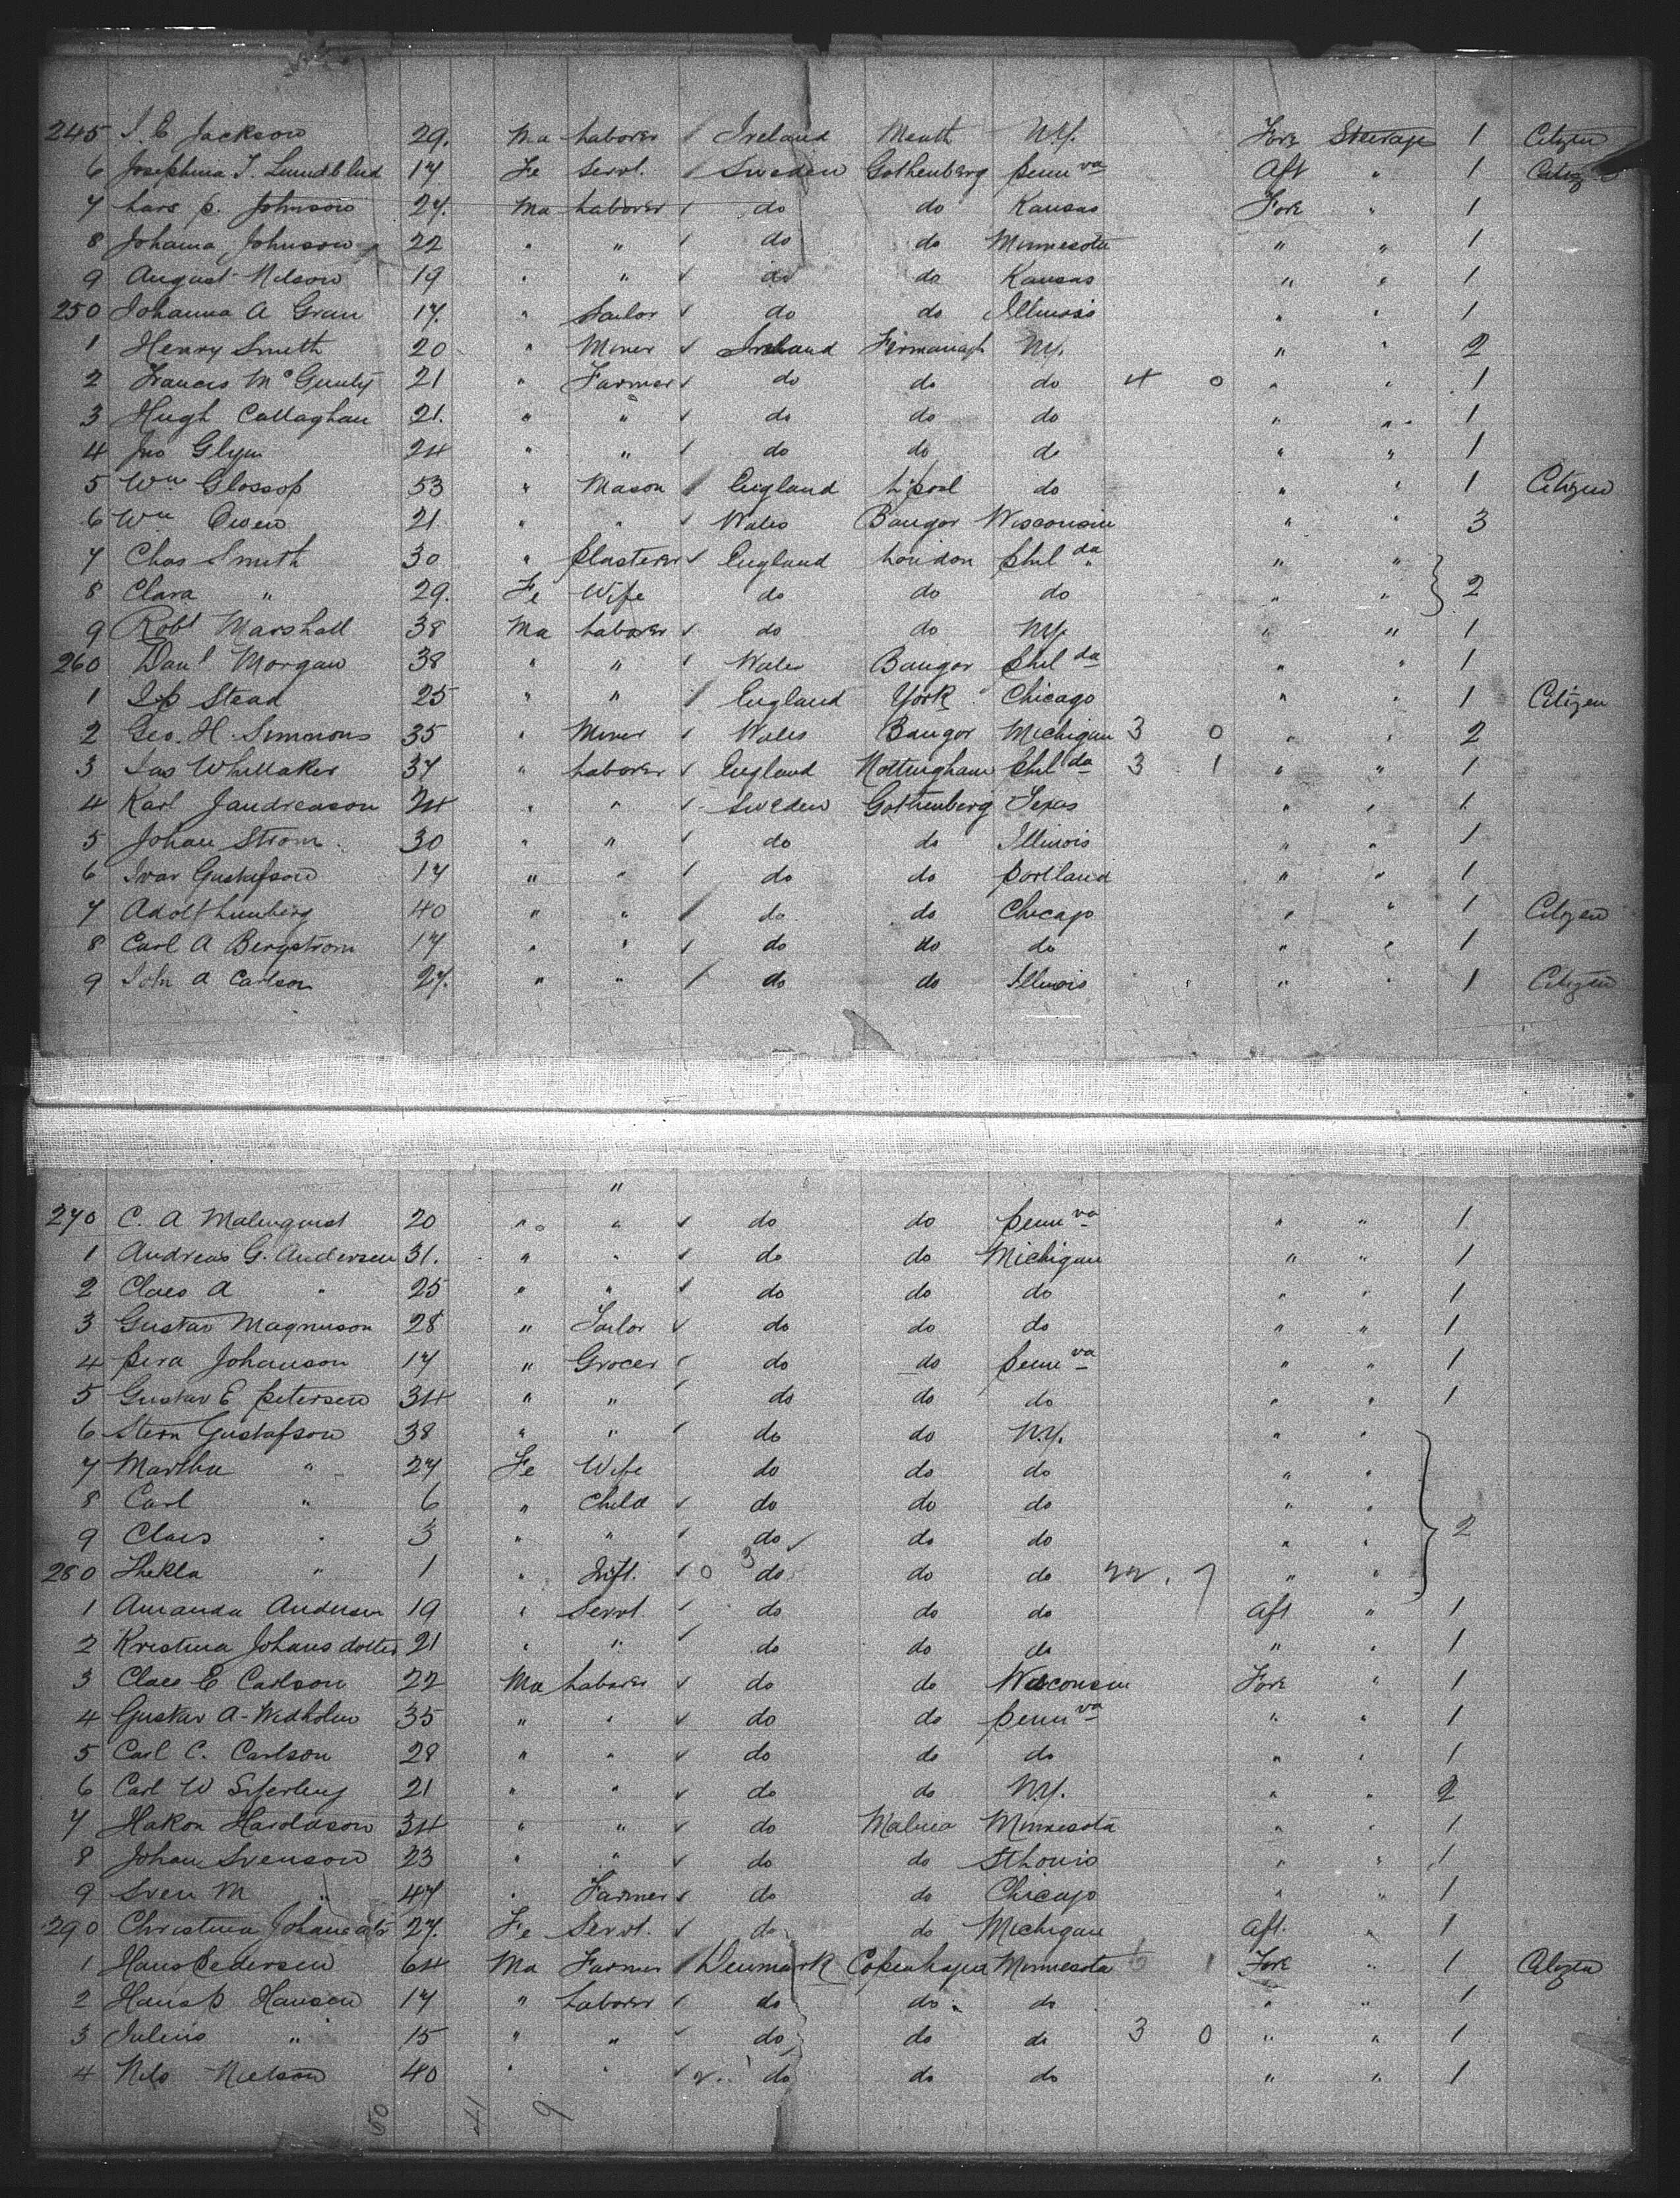 245 J. C Jackson 29. Ma Laborer Ireland Meath N.Y. Fore Steerage 1 Citizen
6 Josephina J. Lundblad 17 Fe Servt. Sweden Gothenberg Pennva Aft " 1 Citiz
7 Lars P. Johnson 27. Ma Laborer do do Kansas Fore " 1
8 Johana Johnson 22 " " do do Minnesota " " 1
9 August Nelson 19 " " do do Kansas " " 1
250 Johanna A Gran 17. " Sailor do do Illinois " " 1
1 Henry Smith 20 " Miner Ireland Firmanagh N.Y. " " 2
2 Francis McGunty 21 " Farmer do do do 4 0 " " 1
3 Hugh Callaghan 21. " " do do do " " 1
4 Jno Glynn 24 " " do do do " " 1
5 Wm Glossop 53 " Mason England L'pool do " " 1 Citizen
6 Wm Owen 21 " " Wales Bangor Wisconsin " " 3
7 Chas Smith 30 " Plasterer England London Philda " "
8 Clara " 29. Fe Wife do do do " " 2
9 Robt Marshall 38 Ma Laborer do do N.Y. " " 1
260 Danl Morgan 38 " " Wales Bangor Philda " " 1
1 Stead 25 " " England York Chicago " " 1 Citizen
2 Geo. H. Simmons 35 " Miner Wales Bangor Michigan 3 0 " " 2
3 Jas Whittaker 37 " Laborer England Nottingham Philda 3 1 " " 1
4 Karl Jandreason 24 " " Sweden Gothenberg Texas " " 1
5 Johan Strom 30 " " do do Illinois " " 1
6 Ivar Gustafson 17 " " do do Portland " " 1
7 Adolf Lunberg 40 " " do do Chicago " " 1 Citizen
8 Carl A Bergstrom 17 " " do do do " " 1
9 John A Carlson 27. " " do do Illinois " " 1 Citizen
"
270 C. A Malmquist 20 " " do do Pennva " " 1
1 Andreas G. Andersen 31. " " do do Michigan " " 1
2 Claes A " 25 " " do do do " " 1
3 Gustav Magnuson 28 " Tailor do do do " " 1
4 Pera Johanson 17 " Grocer do do Pennva " " 1
5 Gustav E Petersen 34 " " do do do " " 1
6 Stern Gustafson 38 " " do do N.Y. " "
7 Martha " 27 Fe Wife do do do " "
8 Carl " 6 " Child do do do " "
9 Claes " 3 " " do do do " " 2
280 Thekla " 1 " Inft. 0 3 do do do 22. 7 " "
1 Amanda Andersen 19 " Servt. do do do Aft " 1
2 Kristina Johansdotter 21 " " do do do " " 1
3 Claes E Carlson 22 Ma Laborer do do Wisconsin Fore " 1
4 Gustav A. Wedholm 35 " " do do Pennva " " 1
5 Carl C. Carlson 28 " " do do do " " 1
6 Carl W 21 " " do do N.Y. " " 2
7 Hakon Haroldson 34 " " do Malmo Minnesota " " 1
8 Johan Svenson 23 " " do do St Louis " " 1
9 Sven M " 47 " Farmer do do Chicago " " 1
290 Christina 27. Fe Servt. do do Michigan Aft. " 1
1 Hans Pedersen 64 Ma Farmer Denmark Copenhagen Minnesota 6 1 Fore " 1 Citizen
2 Hans P Hansen 17 " Laborer do do do " " 1
3 Julius " 15 " " do do do 3 0 " " 1
4 Nils Nielson 40 " " do do do " " 1
50 41 9